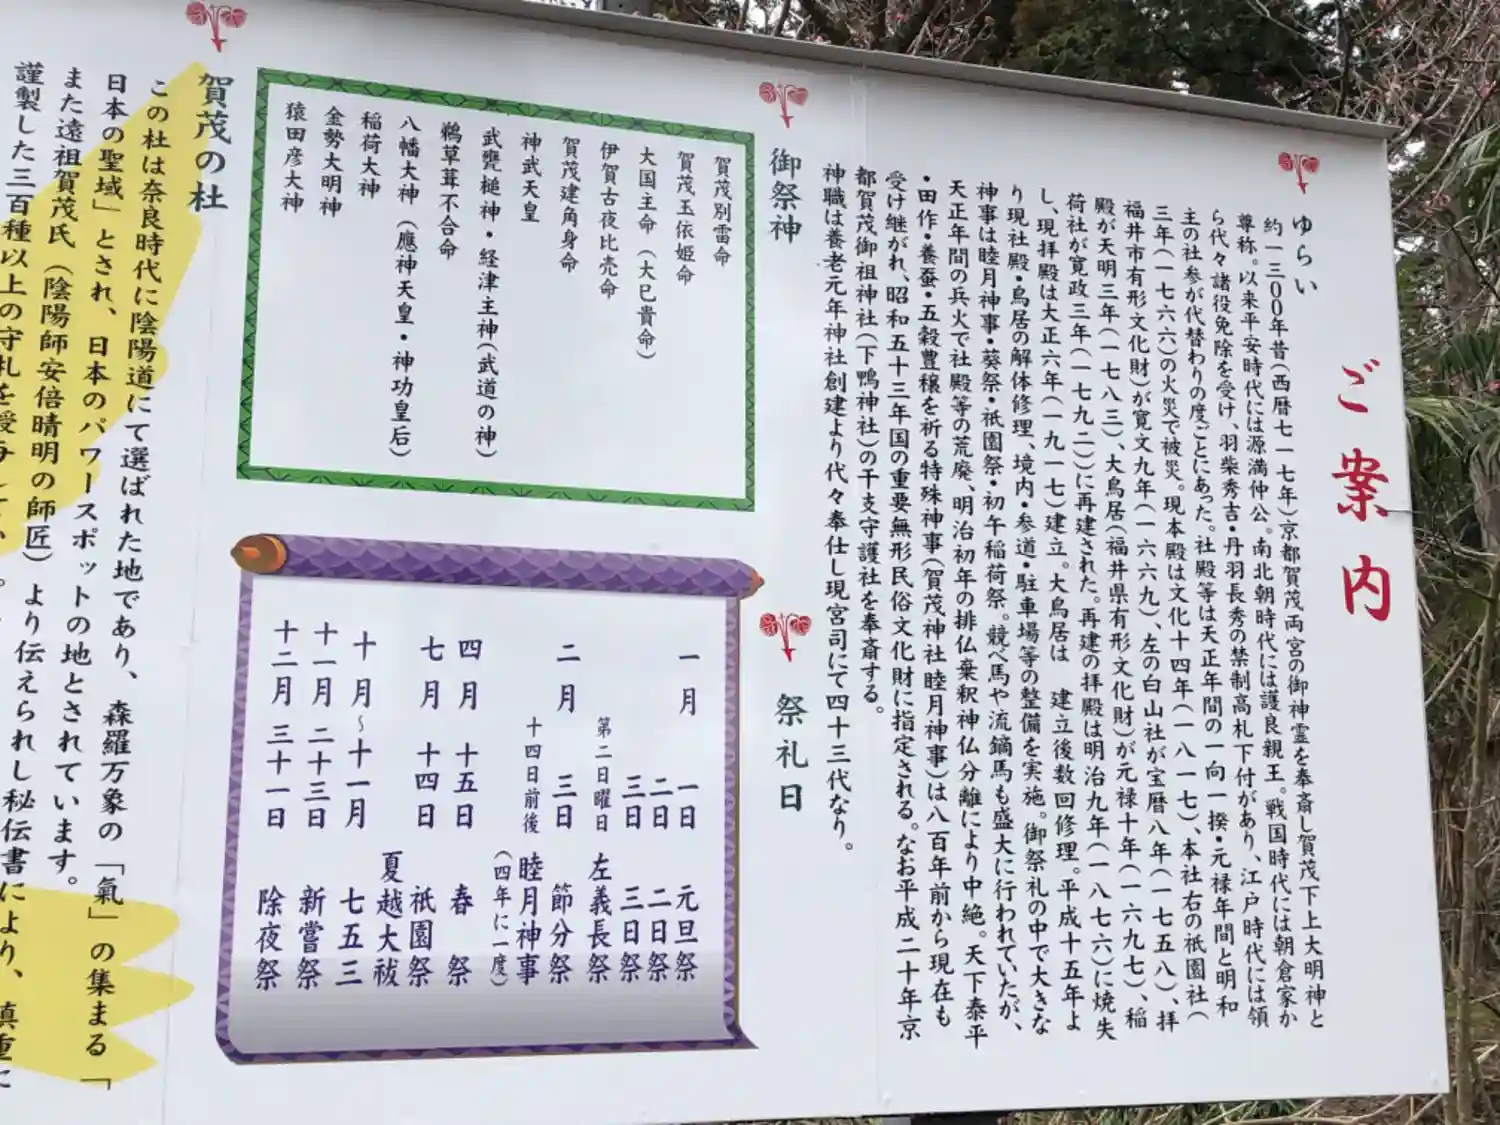 ご案内
ゆらい
約一三00年昔(西暦七一七年)京都賀茂両宮の御神霊を奉斎し賀茂下上大明神と
尊称。以来平安時代には源満仲公。南北朝時代には護良親王。戦国時代には朝倉家か
ら代々諸役免除を受け、羽柴秀吉・丹羽長秀の禁制高札下付があり、江戸時代には領
主の社参が代替わりの度ごとにあった。社殿等は天正年間の一向一揆・元禄年間と明和
三年(一七六六)の火災で被災。現本殿は文化十四年(一八一七)、本社右の祇園社(
福井市有形文化財)が寛文九年(一六六九)、左の白山社が宝暦八年(一七五八)、拝
殿が天明三年(一七八三)、大鳥居(福井県有形文化財)が元禄十年(一六九七)、稲
荷社が寛政三年(一七九二))に再建された。再建の拝殿は明治九年(一八七六)に焼失
し、現拝殿は大正六年(一九一七)建立。大鳥居は 建立後数回修理。平成十五年よ
り現社殿・鳥居の解体修理、境内・参道・駐車場等の整備を実施。御祭礼の中で大きな
神事は睦月神事・葵祭・祇園祭・初午稲荷祭。競べ馬や流鏑馬も盛大に行われていたが、
天正年間の兵火で社殿等の荒廃、明治初年の排仏棄釈神仏分離により中絶。天下泰平
・田作・養蚕・五穀豊穣を祈る特殊神事(賀茂神社睦月神事)は八百年前から現在も
受け継がれ、昭和五十三年国の重要無形民俗文化財に指定される。なお平成二十年京
都賀茂御祖神社(下鴨神社)の干支守護社を奉斎する。
神職は養老元年神社創建より代々奉仕し現宮司にて四十三代なり。
御祭神
賀茂別雷命
賀茂玉依姫命
大国主命(大巳貴命)
伊賀古夜比売命
賀茂建角身命
神武天皇
武甕槌神・経津主神(武道の神)
鵜草葺不合命
八幡大神(應神天皇・神功皇后)
稲荷大神
金勢大明神
猿田彦大神
祭礼日
一月 一日 元旦祭
二日 二日祭
三日 三日祭
第二日曜日 左義長祭
二月 三日 節分祭
十四日前後 睦月神事
(四年に一度)
四月 十五日 春祭
七月 十四日 祇園祭
夏越大祓
十月~十一月 七五三
十一月 二十三日 新嘗祭
十二月 三十一日 除夜祭
賀茂の杜
この杜は奈良時代に陰陽道にて選ばれた地であり、森羅万象の「氣」の集まる「
日本の聖域」とされ、日本のパワースポットの地とされています。
また遠祖賀茂氏(陰陽師安倍晴明の師匠)より伝えられし秘伝書により、慎重に
謹製した三百種以上の守札を授与して